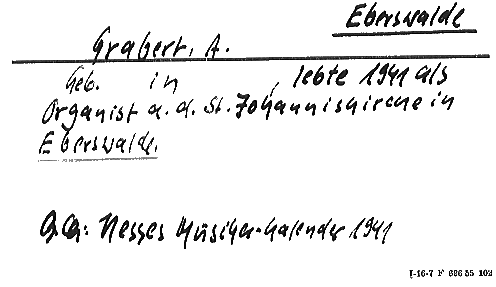 Eberswalde
Grabert, A.
Geb. in , lebte 1941 als
Organist a. d. St. Johanniskirche in
Eberswalde.
Qu: Hesses Musiker-Kalender 1941
I-16-7 F 686 55 102